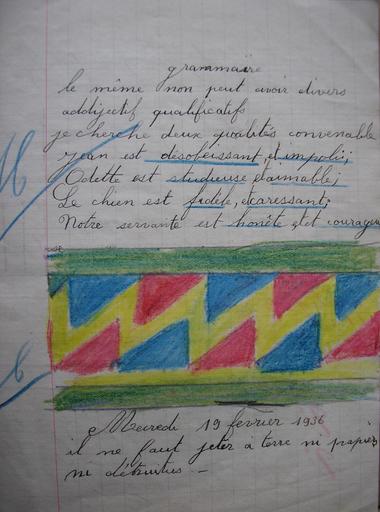 grammaïre
le même non peut avoir divers
addijectif qualificatifs
je cherche deux qualités convenable
Jean est désobeissant, et impoli;
Odette est studieuse et aimable;
Le chien est fidèle, et caressant;
Notre servante est honête, et courageu
Mecredi 19 février 1936
il ne faut jeter a terre ni papiers
ni détruitus -